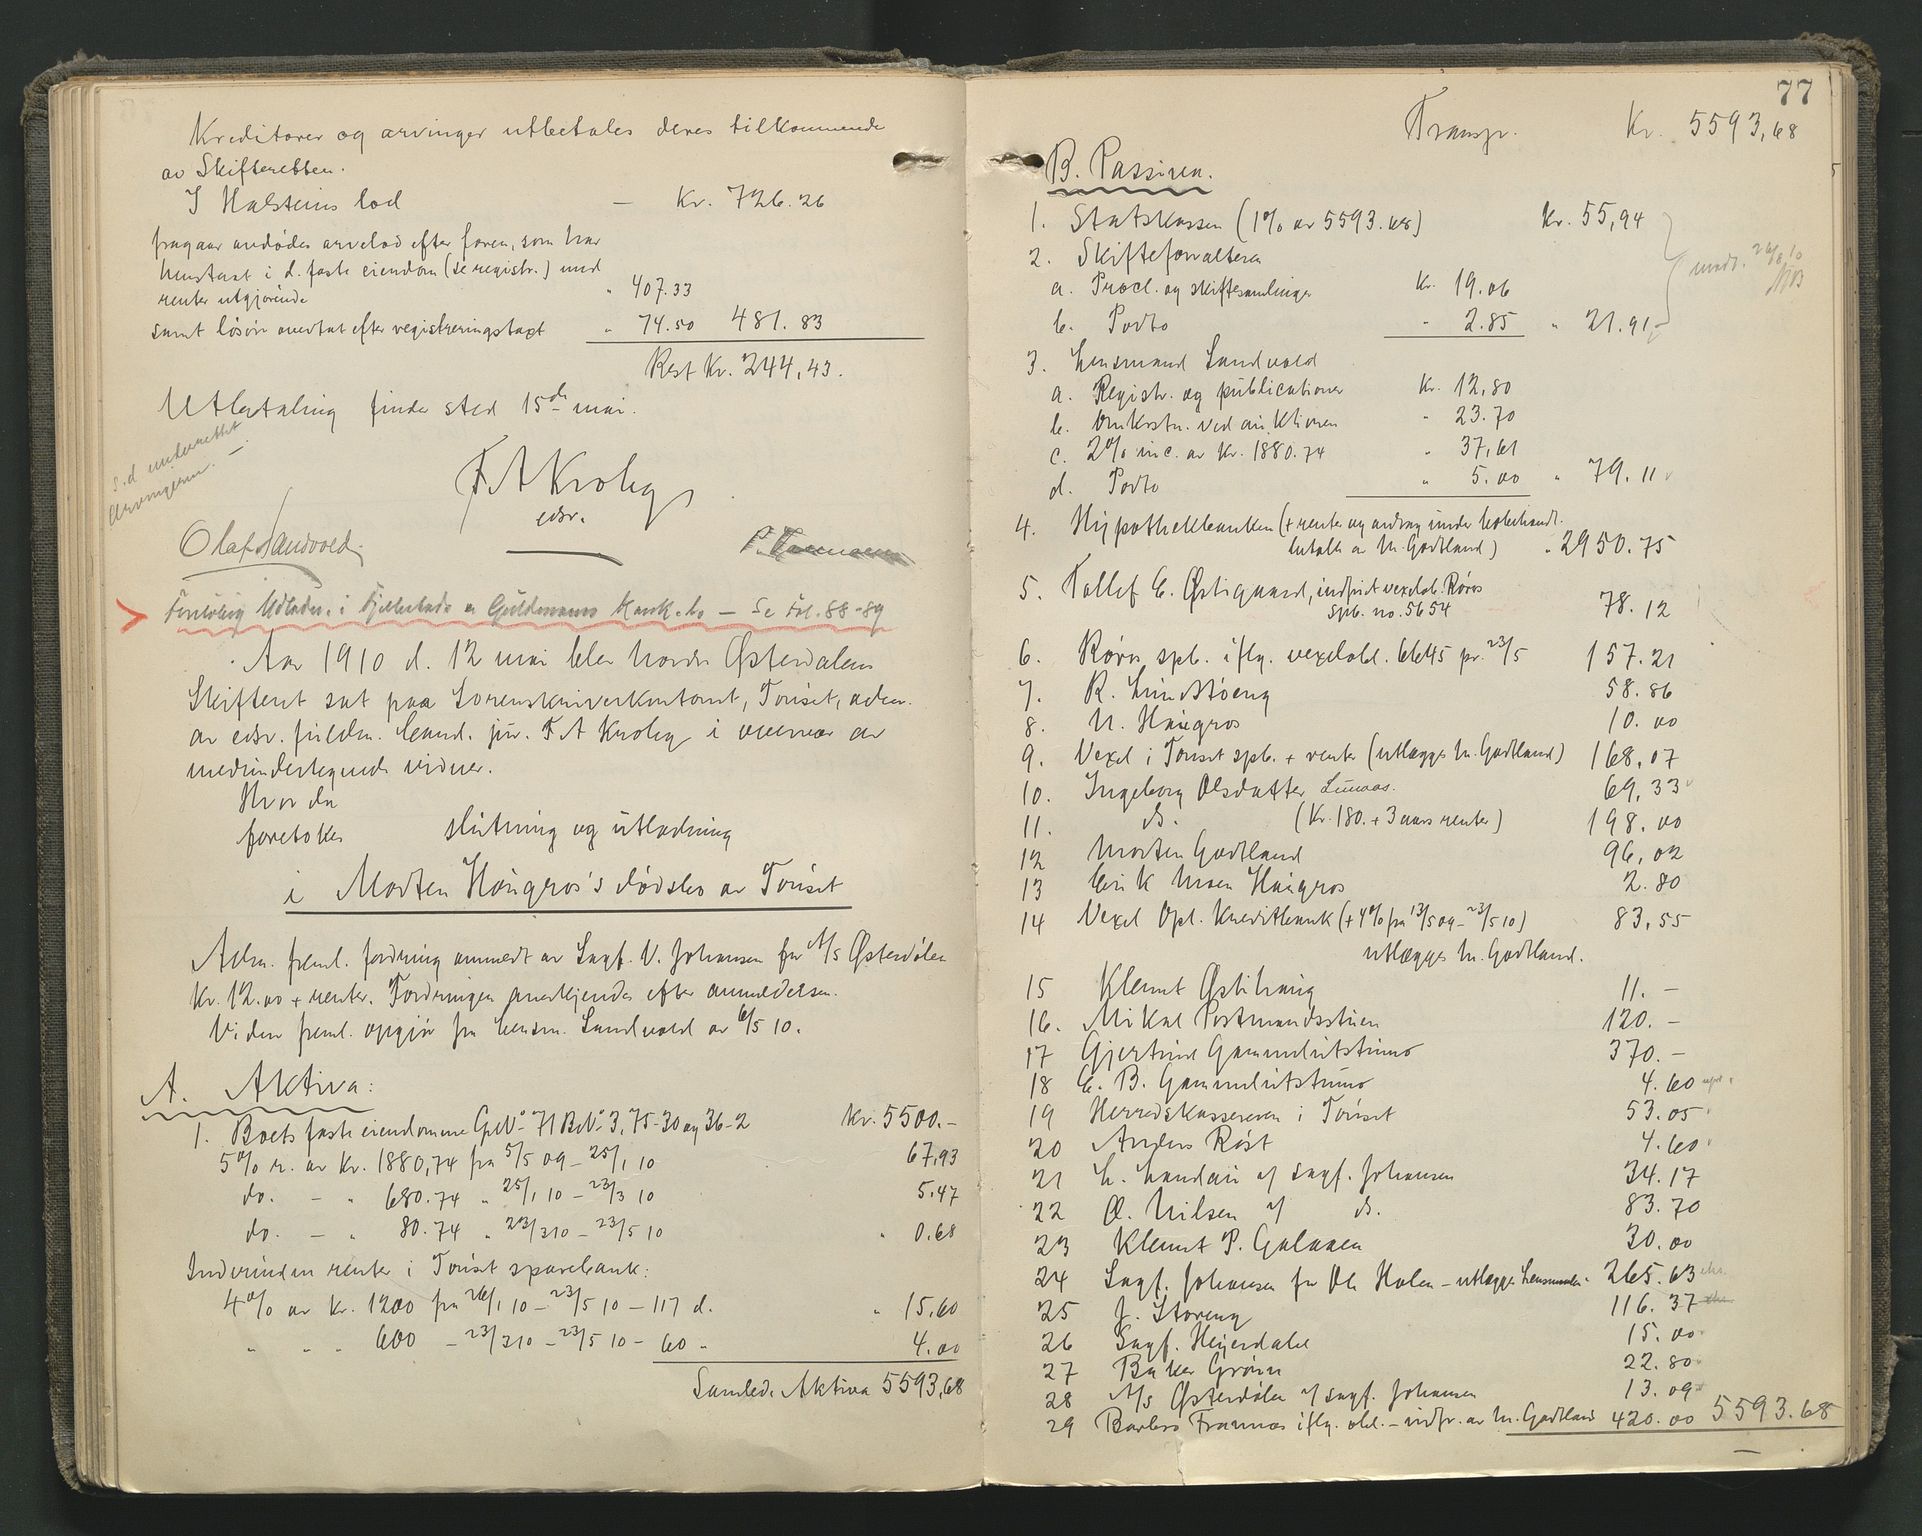 Kreditorer og arvinger utbetales deres tilkommende
av Skifteretten.
I Halsteins lod — Kr. 726.26
fragaar avdødes arvelod efter faren, som har
henstaat i d. faste eiendom (se registr.) med
renter utgjørende " 407.33
samt løsøre overtat efter registreringstaxt " 74.50 481.83
Rest Kr. 244,43.
Utbetaling finder sted 15de mai.
s.d. underrettet
arvingerne. —
F A Krohg
edsv.
Olaf Sandvold.
Foreløbig Utlodn. i Fjeldstads — Se Fol. 88-89
Aar 1910 d. 12 mai blev Nordre Østerdalens
Skifteret sat paa Sorenskriverkontoret, Tønset, adm.
av edsv. fuldm. Cand. jur. F A Krohg i overvær av
medundertegnede vidner.
Hvor da
foretokes slutning og utlodning
i Morten Haugros's dødsbo av Tønset
Adm. freml. fordring anmeldt av Sagf. V. Johansen for A/s Østerdølen
Kr. 12.00 + renter. Fordringen anerkjendes efter anmeldelsen.
Viden freml. opgjør fra lensm. Sandvold av 6/5 10.
A. Aktiva:
1. Boets faste eiendomme G.No 71 B.No 3, 75-30 og 36-2 Kr. 5500.-
5% r. av Kr. 1880,74 fra 5/5 09 - 25/1 10 67,93
do. — " 680.74 " 25/1 10 - 23/3 10 5.47
do. — " 80.74 " 23/3 10 - 23/5 10 " 0.68
Indvundne renter i Tønset sparebank:
4% av Kr. 1200 fra 26/1 10 - 23/5 10 - 117 d. " 15,60
" " " 600 - 23/3 10 - 23/5 10 - 60 " 4.00
Samlede Aktiva 5593,68
77
Transp. Kr. 5593,68
B. Passiva.
1. Statskassen (1% av 5593.68) Kr. 55,94
2. Skifteforvalteren
a. Procl. og skiftesamlinger Kr. 19.06
b. Porto " 2.85 " 21.91
3. Lensmand Sandvold
a. Registr. og publicationer Kr. 12,80
b. Omkostn. ved auktionen " 23.70
c. 2% inc. av Kr. 1880.74 " 37,61
d. Porto " 5.00 " 79.11
4. Hypothekbanken (+ renter og avdrag under bobehandl.
betalt av M. Godtland) " 2950.75
5. Tollef E. Østigaard, indfriet vexelobl. Røros
spb. no. 5654 78.12
6. Røros spb. iflg. vexelobl. 6645 pr. 23/5 157.21
7. R. Lundstøeng 58.86
8. N. Haugros 10.00
9. Vexel i Tønset spb. + renter (utlægges M. Godtland) 168,07
10. Ingeborg Olsdatter Lunaas. 69,33
11. do. (Kr. 180. + 3 aars renter) 198.00
12 Morten Godtland 96,02
13 Erik Moen Haugros 2.80
14 Vexel Opl. Kreditbank (+ 4% fra 13/5 09 - 23/5 10) 83,55
utlægges M. Godtland.
15 Klemet Østihaug 11. —
16. Mikal Postmandsstuen 120. —
17 Gjertrud Gammelutstumo 370. —
18 E. B. Gammelutstumo 4.60
19 Herredskassereren i Tønset 53.05
20 Anders Røst 4.60
21 L. Landau v/ sagf. Johansen 34.17
22 O. Nilsen v/ do. 83.70
23 Klemet P. Galaaen 30.00
24 Sagf. Johansen for Ole Holen - utlægges lensmanden 265.63
25 J. Storeng 116.37
26 Sagf. Heyerdahl 15.00
27 Baker Grønn 22.80
28 A/s Østerdølen v/ sagf. Johansen 13.09
29 Barbro Framnæs iflg. obl. - indfr. av M. Godtland 420.00 5593.68